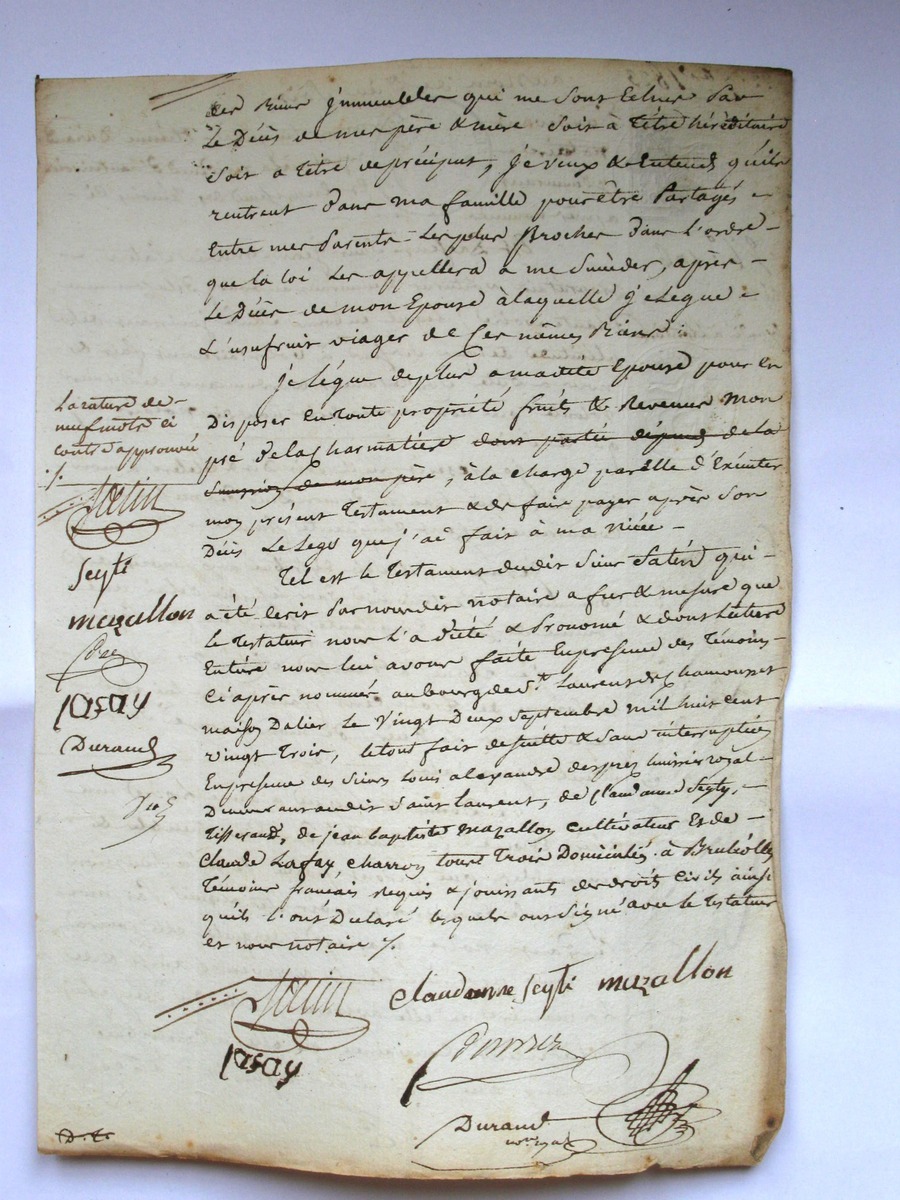 des Biens jmmeubles qui me sont Echus par
Le Décès de mes père & mère soit à titre héréditaire
soit a titre de préciput, je veux & Entends qu'ils
rentrent dans ma famille pour être Partagés
Entre mes Parents Les plus Proches dans L'ordre
que la loi Les appellera à me Succèder, après
Le Décès de mon Epouse à laquelle je Legue
L'usufruit viager de Ces mêmes Biens :
je Légue de plus a madite Epouse pour en
Disposer en toute propriété fruits & Revenus mon
pré de la Charmatière dont partie dépend de la
de mon père, à la charge par elle d'Exécuter
mon présent Testament & de faire payer après Son
Décès Le Legs que j'ai fait à ma niéce
Tel est le Testament dudit Sieur qui
a été écrit par nousdit notaire a fur & mesure que
le Testateur nous L'a dicté & Prononcé & dont Lecture
Entière nous lui avons faite En présence des Témoins
Ci après nommés au bourg de St. Laurent de Chamousset
maison Dalier Le Vingt Deux Septembre mil huit cent
vingt Trois, le tout fait de suitte & sans interruption
En présence des Sieurs Louis alexandre despres huissier royal
Demeurant audit Saint Laurent, de Claudanne Seyty,
Tisserand, de jean baptiste mazallon Cultivateur Et de
Claude Lafay Charron tous Trois Domiciliés à Brulliolles
Témoins français requis & jouissants des droits Civils ainsi
qu'ils l'ont Déclaré lesquels ont Signé avec le Testateur
et nous notaire ./.
La rature de
neuf mots ci
contre approuvée
./.
Seyti
mazallon
lafay
Durand
claudanne seyti mazallon
lafay
Durand